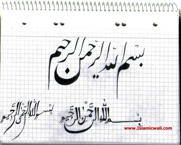 بسم الله الرحمن الرحيم
بسم الله الرحمن الرحيم
بسم الله الرحمن الرحيم
www.Islamicwall.com